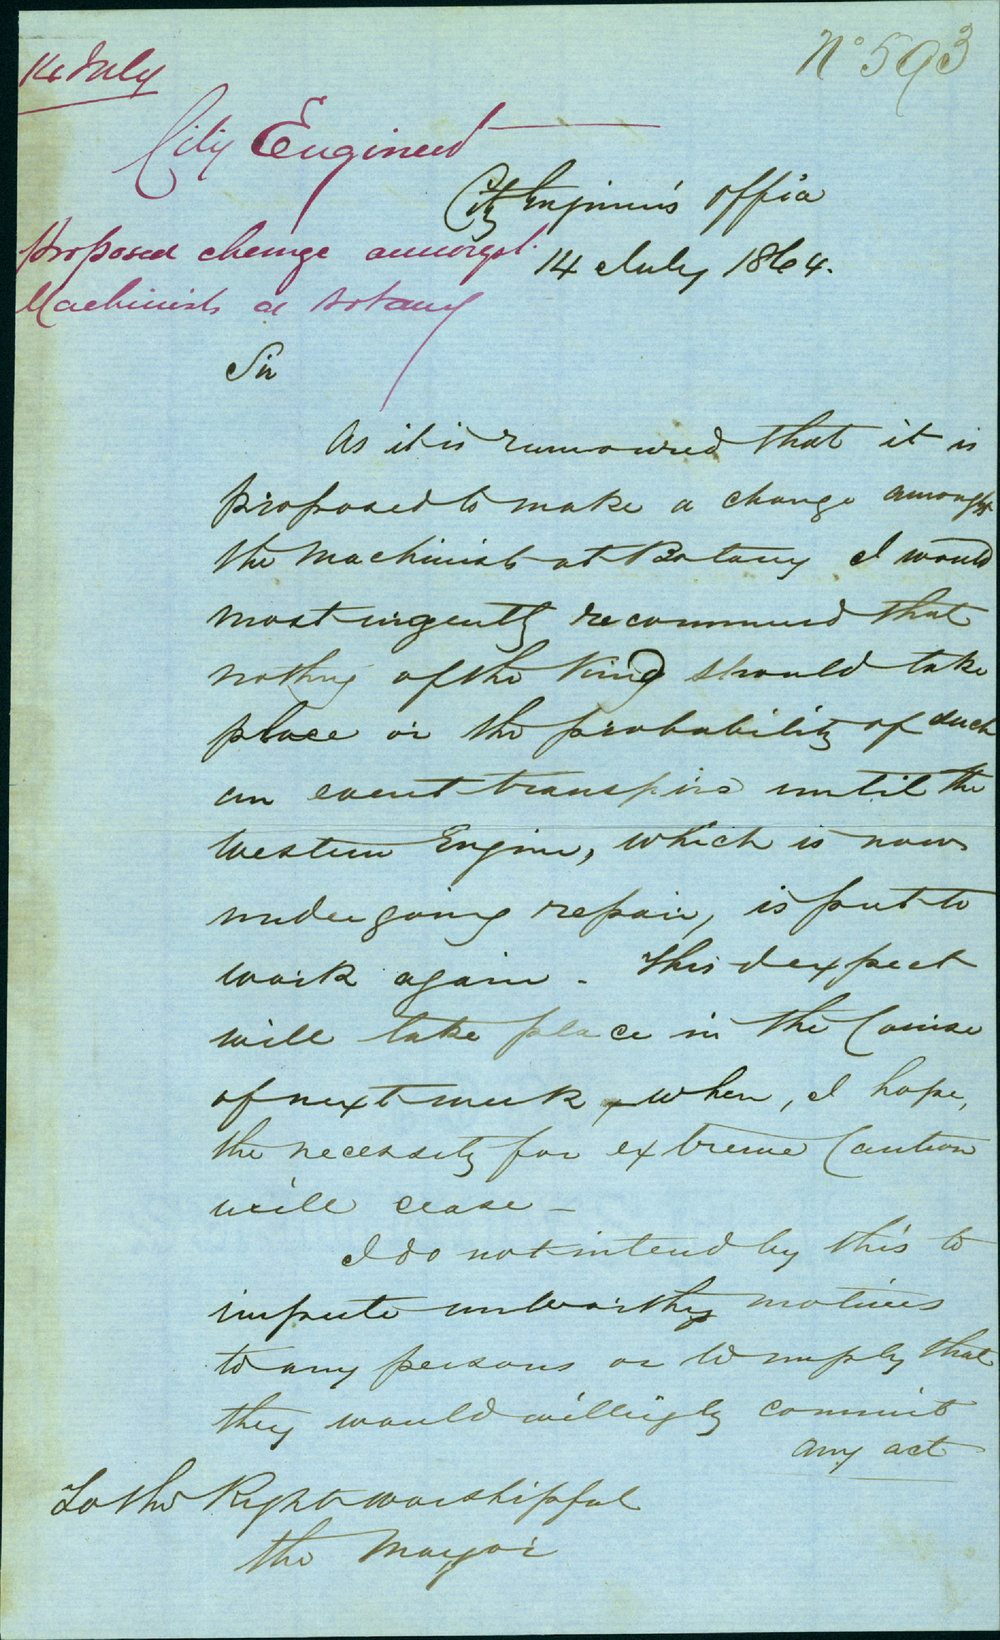 14 July
No 593
City Engineer
City Engineer's Office
14 July 1864.
Proposed change amongst
Machinists at Botany
Sir
As it is rumoured that it is
proposed to make a change amongst
the Machinists at Botany I would
most urgently recommend that
nothing of the kind should take
place or the probability of such
an event transpire until the
Western Engine, which is now
undergoing repair, is put to
work again - This I expect
will take place in the Course
of next week, when, I hope,
the necessity for extreme Caution
will cease -
I do not intend by this to
impute unworthy motives
to any persons or to imply that
they would willingly commit
any act
To the Right Worshipful
the Mayor